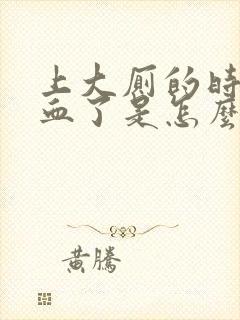 上大厕的时
血了是怎麼
黄騰